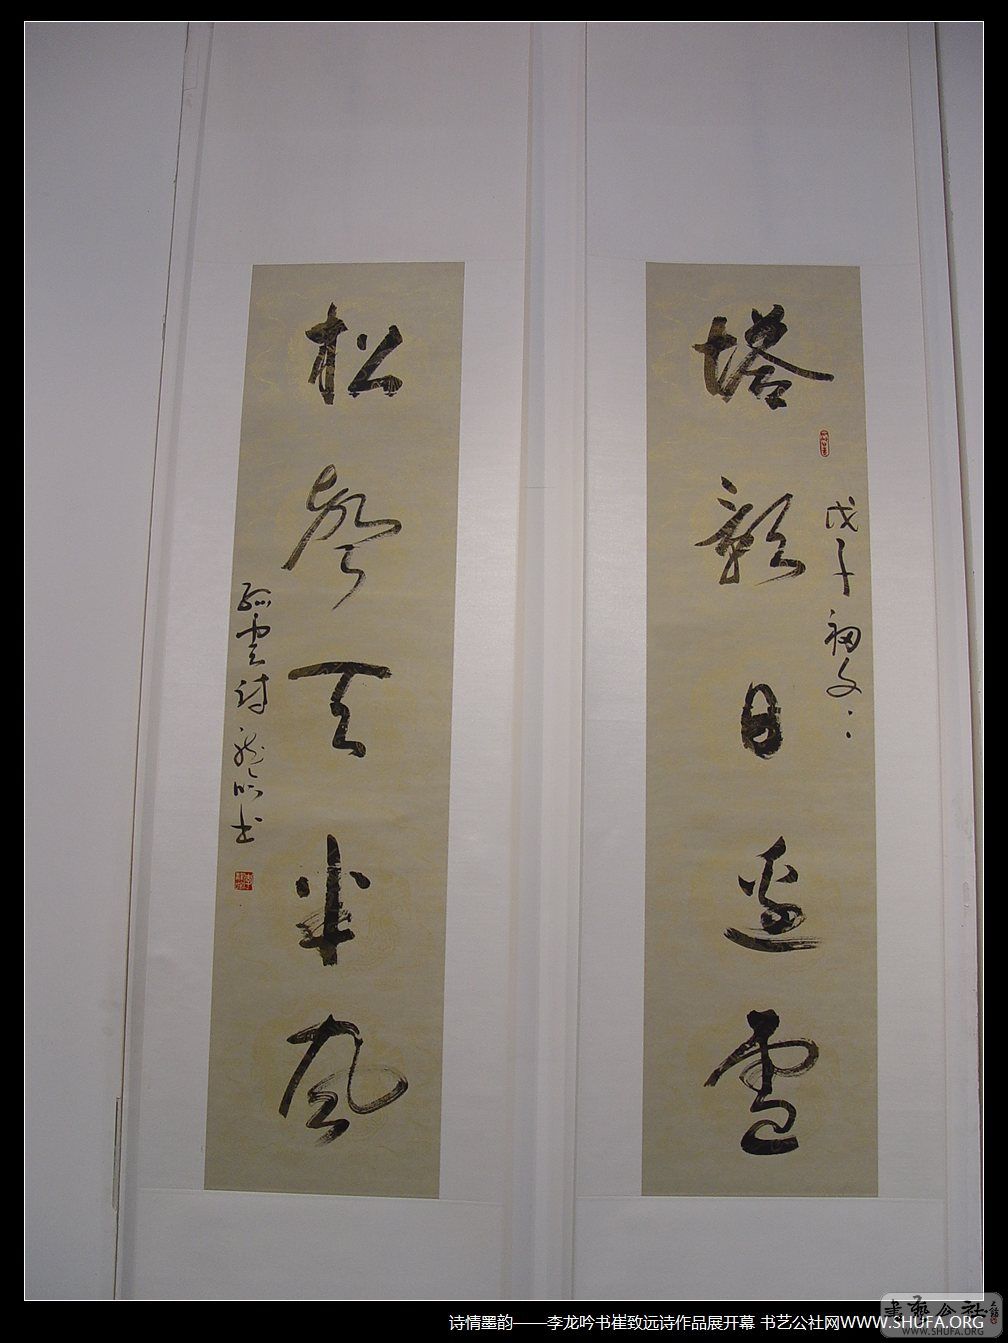 戊子初冬
塔影日邊雪
松聲天半風
孤雲詩龍吟書
诗情墨韵——李龙吟书崔致远诗作品展开幕 书艺公社网WWW.SHUFA.ORG
書艺公社
WWW.SHUFA.ORG